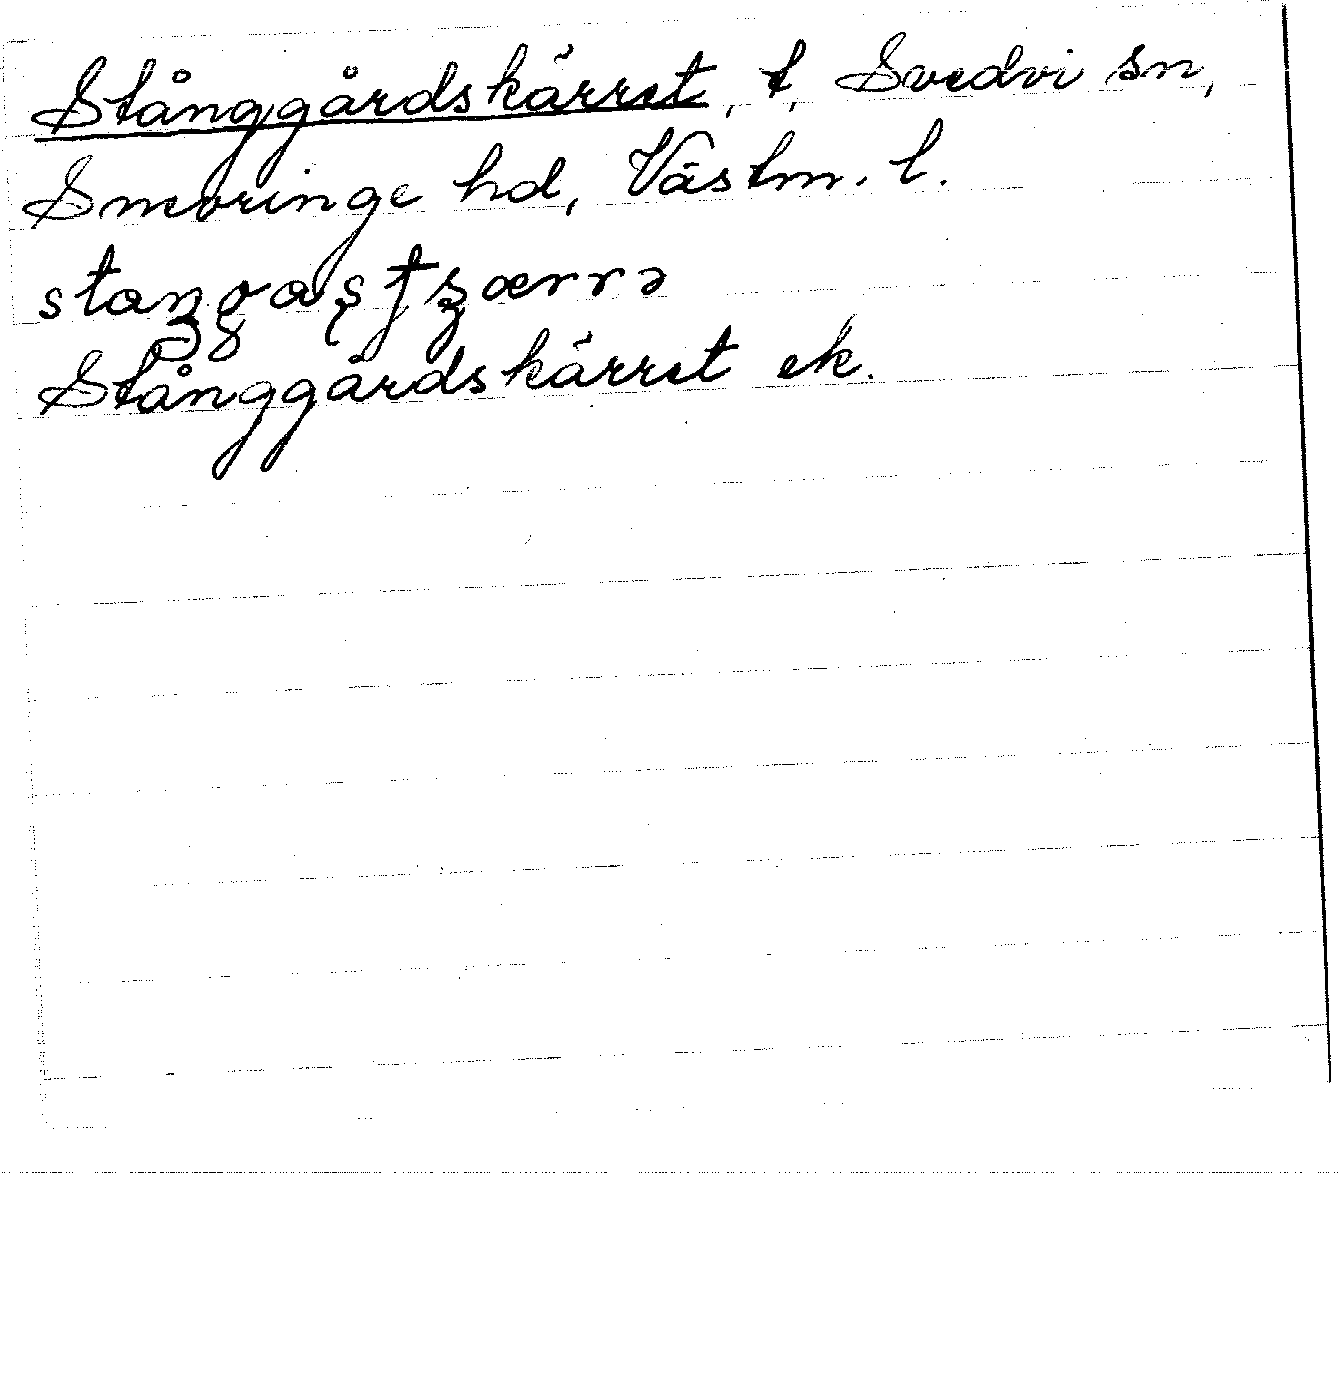 Stånggårdskärret, t, Svedvi sn,
Snevringe hd, Västm. l.
Stånggårdskärret ek.